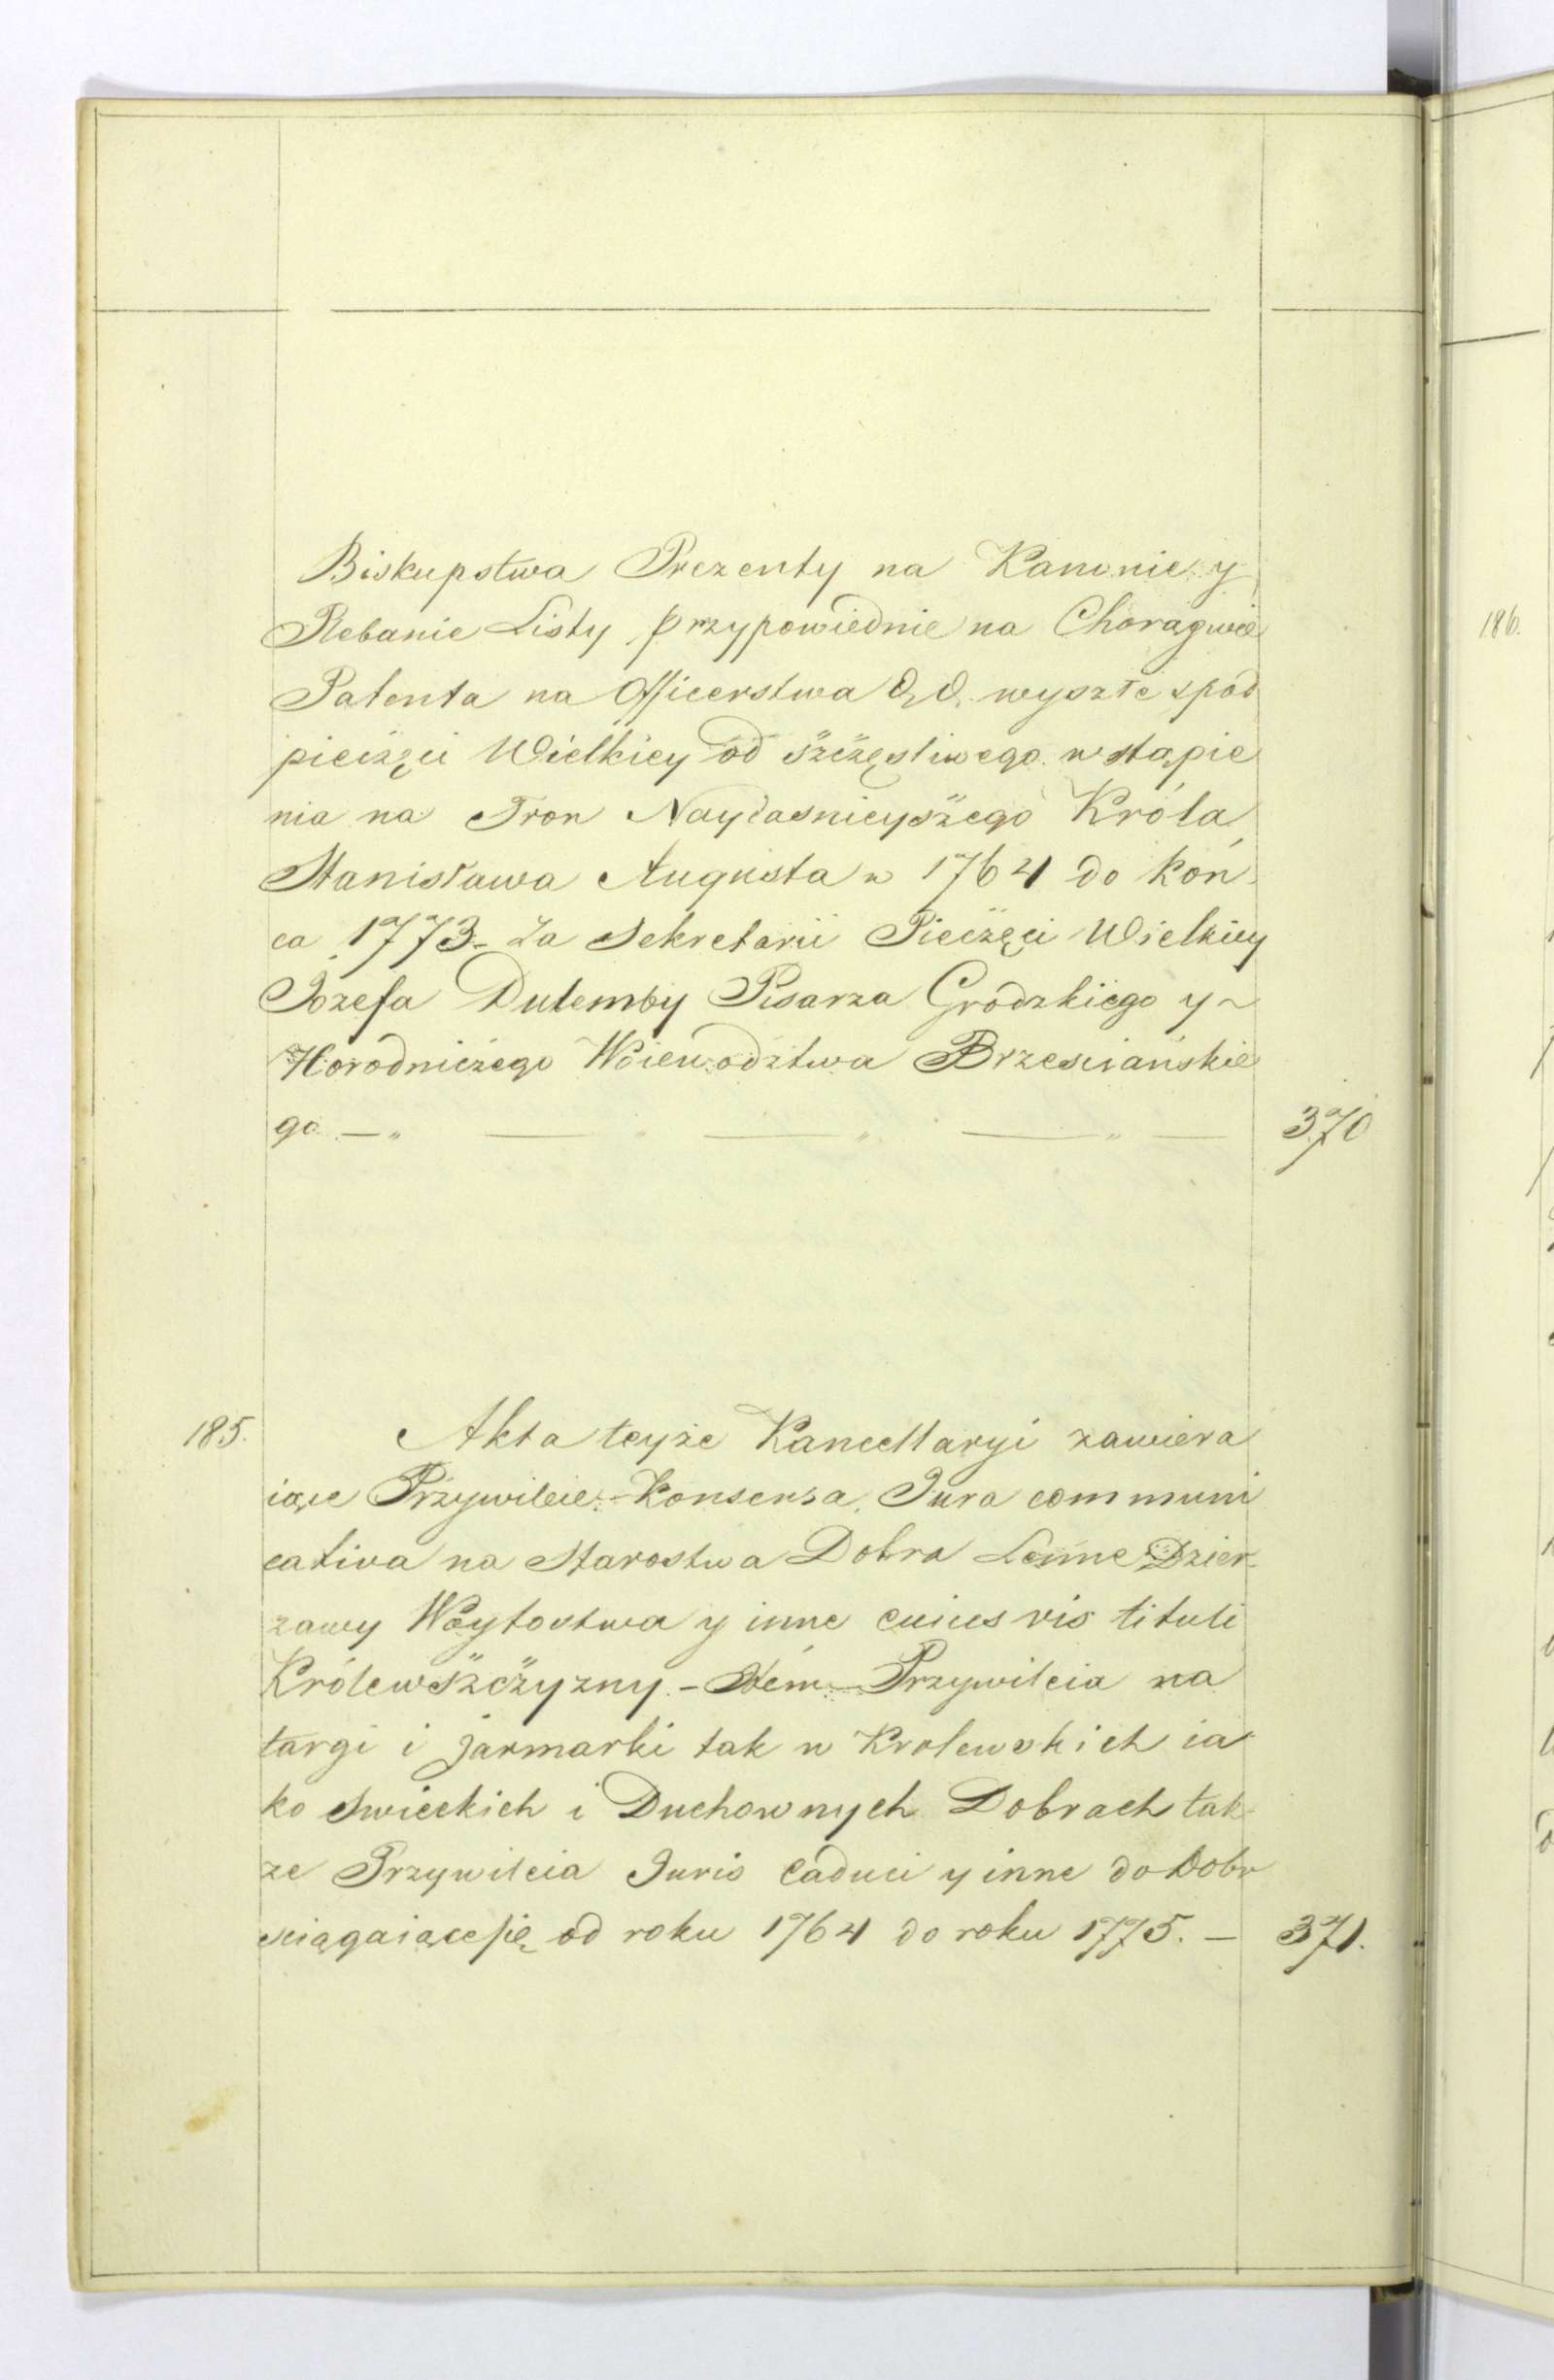 Biskupstwa Prezenty na Kanonie y
Plebanie Listy przypowiednie na Chorągwie
Patenta na Officerstwa &c. &c. wyszłe zpod
pieczęci Wielkiey od szczęsliwego wstąpie
nia na Tron Nayiasnieyszego Króla
Stanisława Augusta w 1764 do koń
ca 1773 - Za Sekretarii Pieczęci Wielkiey
Józefa Dulemby Pisarza Grodzkiego y
Horodniczego Woiewodztwa Brzesciańskie
go — 370
186.
185. Akta teyże Kancellaryi zawiera
iące Przywileie - Konsensa, Jura communi
cativa na Starostwa Dobra Lenne Dzier-
zawy Woytostwa y inne cuiusvis tituli
Królewszczyzny - Item - Przywileia na
targi i jarmarki tak w Krolewskich ia
ko Swieckich i Duchownych Dobrach tak
ze Przywileia Juris Caduci y inne do Dobr
sciągaiące się od roku 1764 do roku 1775. — 371.